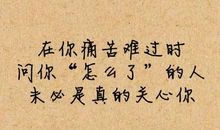 在你痛苦难过时
问你“怎么了”的人
未必是真的关心你